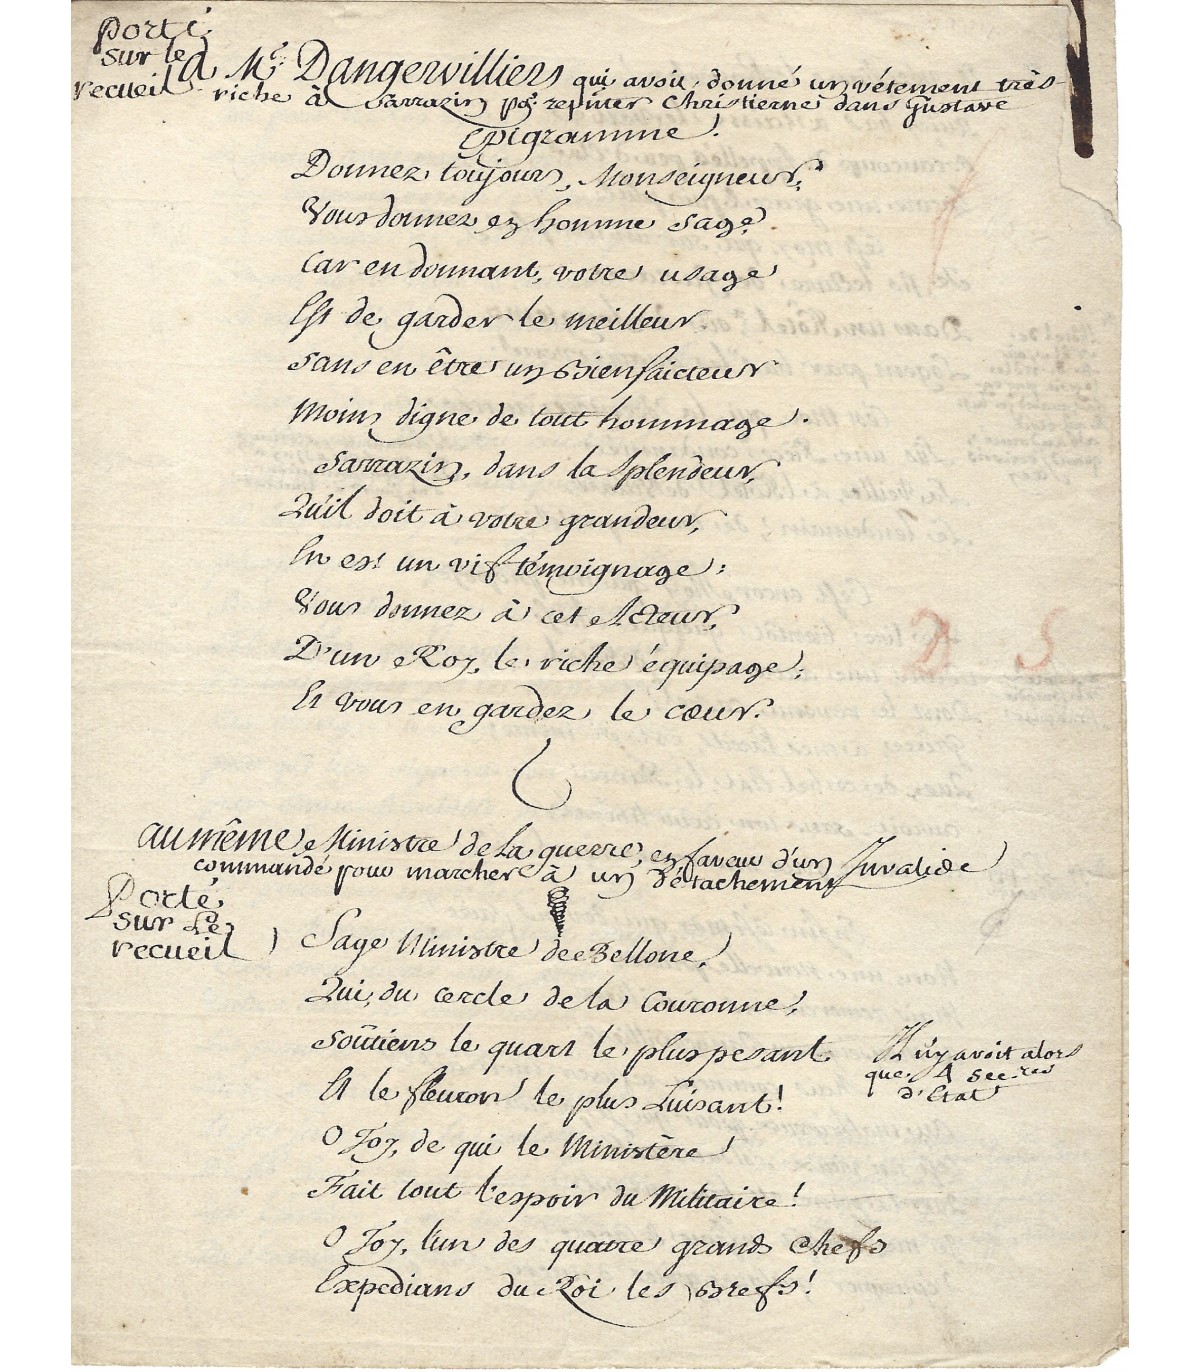 Porté
sur le
recueil
A Mr. Dangervilliers qui avoit donné un vêtement très
riche à Sarrazin pr. repnter Christierne dans Gustave
Epigramme.
Donnez toujours, Monseigneur,
Vous donnez en homme sage
Car en donnant, votre usage
Est de garder le meilleur
Sans en être un Bienfaicteur
Moins digne de tout hommage.
Sarrazin, dans la Splendeur,
Qu'il doit à votre grandeur,
En est un vif témoignage:
Vous donnez à cet Acteur,
D'un Roy, le riche équipage;
Et vous en gardez le cœur.
au même Ministre de la guerre, en faveur d'un Invalide
commandé pour marcher à un Détachement
Porté
sur Le
recueil
Sage Ministre de Bellone,
Qui, du cercle de la Couronne,
Soûtiens le quart le plus pesant
Et le fleuron le plus Luisant!
Il n'y avoit alors
que 4 Sec.res
d'Etat
O Toy, de qui le Ministère
Fait tout l'espoir du Militaire!
O Toy, l'un des quatre grands Chefs
Expedians du Roi les Brefs!